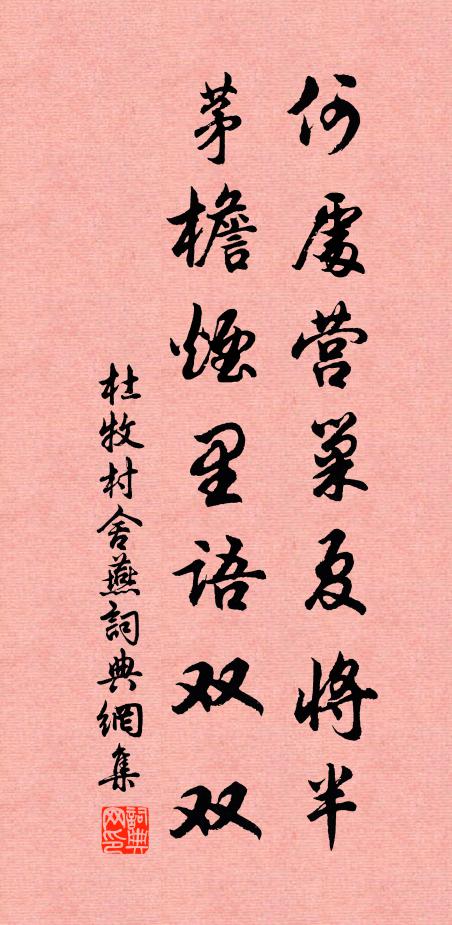 何處营巢夏將半
茅檐煙里語双双
杜牧村舍燕詞典網集
詞典網印